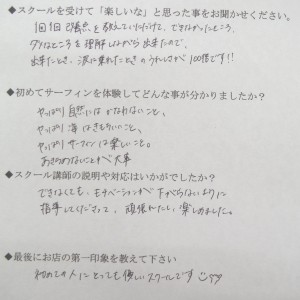 ◆スクールを受けて「楽しいな」と思った事をお聞かせください。
1回1回改善点を教えていただけて、できなかったところ、
ダメなところを理解しながら出来たので、
出来たとき、波に乗れたときのうれしさが100倍です!!
◆初めてサーフィンを体験してどんな事が分かりましたか?
やっぱり自然にはかなわないこと、
やっぱり海はきもちいいこと、
やっぱりサーフィンは楽しいこと。
あきらめないことが大事
◆スクール講師の説明や対応はいかがでしたか?
できなくても、モチベーションが下がらないように
指導してくださって、頑張れたし、楽しめました。
◆最後にお店の第一印象を教えて下さい
初めての人にとっても優しいスクールです